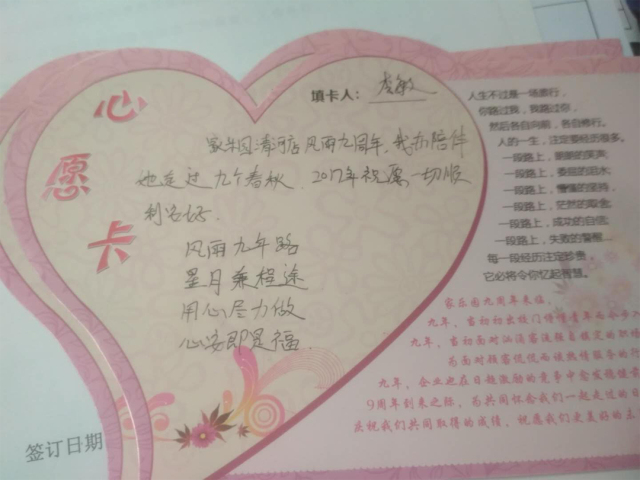 心愿卡
填卡人：
家乐园清河店风雨九周年，我亦陪伴
她走过九个春秋，2017年祝愿一切顺
利安好。
风雨九年路
星月兼程途
用心尽力做
心安即是福
签订日期
人生不过是一场旅行，
你路过我，我路过你，
然后各自向前，各自修行。
人的一生，注定要经历很多。
一段路上，朗朗的笑声；
一段路上，委屈的泪水；
一段路上，懵懂的坚持；
一段路上，茫然的取舍；
一段路上，成功的自信；
一段路上，失败的警醒……
每一段经历注定珍贵，
它必将令你忆起智慧。
家乐园九周年来临，
九年，当初初出校门
九年，当初面对
当面对顾客
九年，企业也在日趋激励的竞争中愈发
9周年到来之际，为共同怀念我们一起走过的日
庆祝我们共同取得的成绩，祝愿我们更美好的